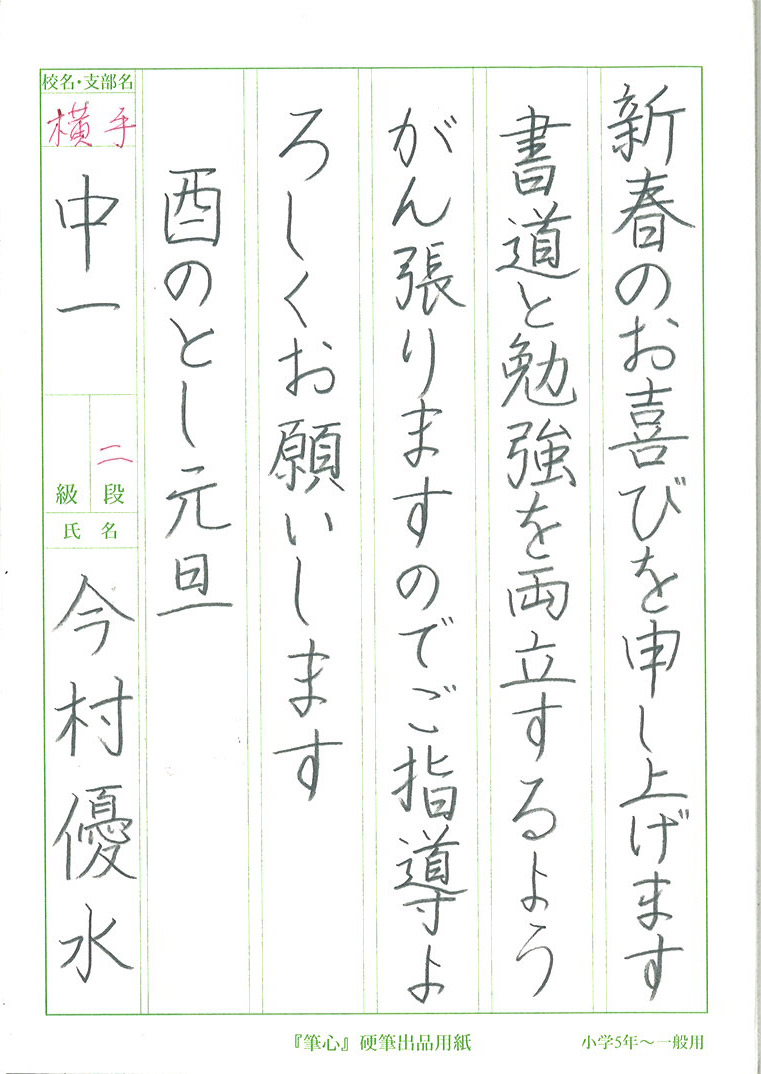 新春のお喜びを申し上げます
書道と勉強を両立するよう
がん張りますのでご指導よ
ろしくお願いします
酉のとし元旦
校名・支部名
横手
中一
二
級 段
氏名
今村優水
『筆心』硬筆出品用紙
小学5年〜一般用